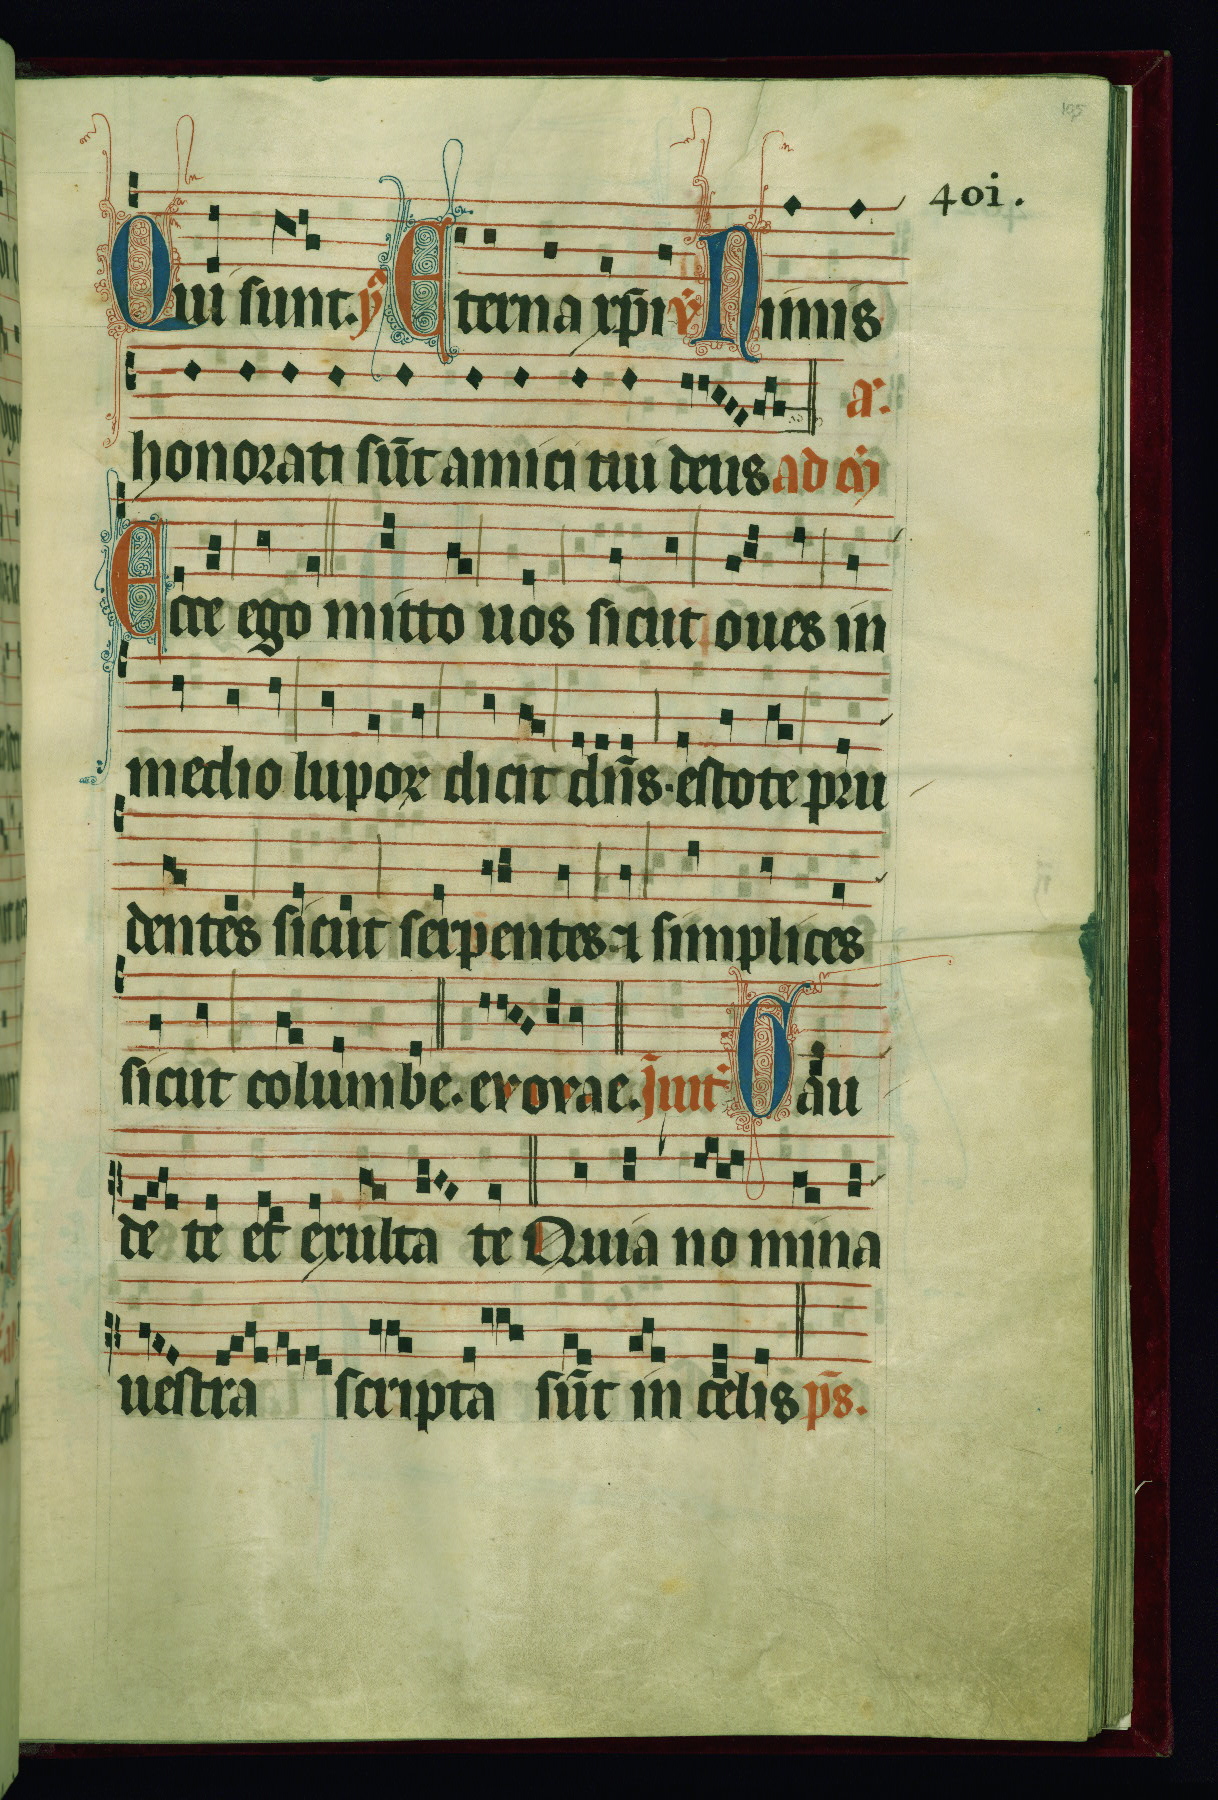 195
401.
Qui sunt. ỹ Eterna xp̄i v̇ Nimis
honorati sūt amici tui deus ad cm̄ a.
Ecce ego mitto uos sicut oues in
medio lupoꝝ dicit dn̄s. estote pru
dentes sicut serpentes. ⁊ simplices
sicut columbe. evovae. Gau
de te et exulta te Quia no mina
uestra scripta sūt in celis p̄s.